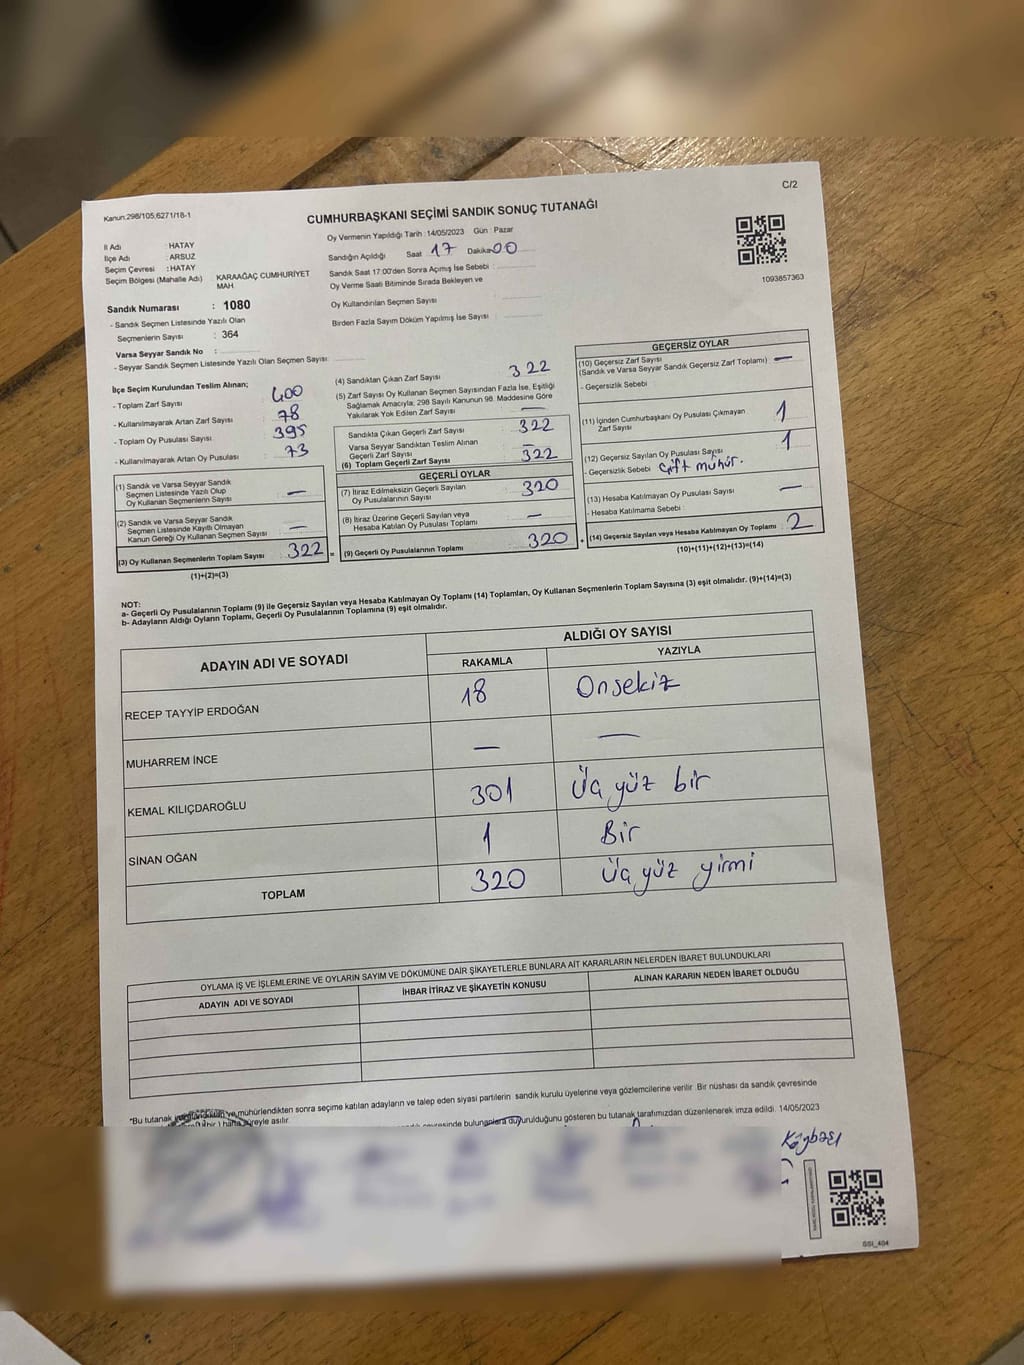 C/2
Kanun:298/105,6271/18-1
CUMHURBAŞKANI SEÇİMİ SANDIK SONUÇ TUTANAĞI
İl Adı : HATAY
İlçe Adı : ARSUZ
Seçim Çevresi : HATAY
Seçim Bölgesi (Mahalle Adı) : KARAAĞAÇ CUMHURİYET MAH.
Sandık Numarası : 1080
- Sandık Seçmen Listesinde Yazılı Olan
Seçmenlerin Sayısı : 364
Varsa Seyyar Sandık No :
- Seyyar Sandık Seçmen Listesinde Yazılı Olan Seçmen Sayısı:
Oy Vermenin Yapıldığı Tarih : 14/05/2023 Gün : Pazar
Sandığın Açıldığı Saat 17 Dakika 00
Sandık Saat 17:00'den Sonra Açımış İse Sebebi :
Oy Verme Saati Bitiminde Sırada Bekleyen ve
Oy Kullandırılan Seçmen Sayısı :
Birden Fazla Sayım Döküm Yapılmış İse Sayısı :
1093857363
İlçe Seçim Kurulundan Teslim Alınan;
- Toplam Zarf Sayısı : 400
- Kullanılmayarak Artan Zarf Sayısı : 78
- Toplam Oy Pusulası Sayısı : 395
- Kullanılmayarak Artan Oy Pusulası : 73
(1) Sandık ve Varsa Seyyar Sandık
Seçmen Listesinde Yazılı Olup
Oy Kullanan Seçmenlerin Sayısı : —
(2) Sandık ve Varsa Seyyar Sandık
Seçmen Listesinde Kayıtlı Olmayan
Kanun Gereği Oy Kullanan Seçmen Sayısı : —
(3) Oy Kullanan Seçmenlerin Toplam Sayısı : 322 =
(1)+(2)=(3)
(4) Sandıktan Çıkan Zarf Sayısı : 322
(5) Zarf Sayısı Oy Kullanan Seçmen Sayısından Fazla İse, Eşitliği
Sağlamak Amacıyla, 298 Sayılı Kanunun 98. Maddesine Göre
Yakılarak Yok Edilen Zarf Sayısı : —
Sandıkta Çıkan Geçerli Zarf Sayısı : 322
Varsa Seyyar Sandıktan Teslim Alınan
Geçerli Zarf Sayısı : —
(6) Toplam Geçerli Zarf Sayısı : 322
GEÇERLİ OYLAR
(7) İtiraz Edilmeksizin Geçerli Sayılan
Oy Pusulalarının Sayısı : 320
(8) İtiraz Üzerine Geçerli Sayılan veya
Hesaba Katılan Oy Pusulası Toplamı : —
(9) Geçerli Oy Pusulalarının Toplamı : 320 +
GEÇERSİZ OYLAR
(10) Geçersiz Zarf Sayısı
(Sandık ve Varsa Seyyar Sandık Geçersiz Zarf Toplamı) : —
- Geçersizlik Sebebi
(11) İçinden Cumhurbaşkanı Oy Pusulası Çıkmayan
Zarf Sayısı : 1
(12) Geçersiz Sayılan Oy Pusulası Sayısı : 1
- Geçersizlik Sebebi : Çift mühür.
(13) Hesaba Katılmayan Oy Pusulası Sayısı : —
- Hesaba Katılmama Sebebi :
(14) Geçersiz Sayılan veya Hesaba Katılmayan Oy Toplamı : 2
(10)+(11)+(12)+(13)=(14)
NOT:
a- Geçerli Oy Pusulalarının Toplamı (9) ile Geçersiz Sayılan veya Hesaba Katılmayan Oy Toplamı (14) Toplamları, Oy Kullanan Seçmenlerin Toplam Sayısına (3) eşit olmalıdır. (9)+(14)=(3)
b- Adayların Aldığı Oyların Toplamı, Geçerli Oy Pusulalarının Toplamına (9) eşit olmalıdır.
ADAYIN ADI VE SOYADI ALDIĞI OY SAYISI
RAKAMLA YAZIYLA
RECEP TAYYİP ERDOĞAN 18 Onsekiz
MUHARREM İNCE — —
KEMAL KILIÇDAROĞLU 301 Üç yüz bir
SİNAN OĞAN 1 Bir
TOPLAM 320 Üç yüz yirmi
OYLAMA İŞ VE İŞLEMLERİNE VE OYLARIN SAYIM VE DÖKÜMÜNE DAİR ŞİKAYETLERLE BUNLARA AİT KARARLARIN NELERDEN İBARET BULUNDUKLARI
ADAYIN ADI VE SOYADI İHBAR İTİRAZ VE ŞİKAYETİN KONUSU ALINAN KARARIN NEDEN İBARET OLDUĞU
*Bu tutanak ve mühürlendikten sonra seçime katılan adayların ve talep eden siyasi partilerin sandık kurulu üyelerine veya gözlemcilerine verilir. Bir nüshası da sandık çevresinde
hafta süreyle asılır.
çevresinde bulunanlara duyurulduğunu gösteren bu tutanak tarafımızdan düzenlenerek imza edildi. 14/05/2023
GSI_404